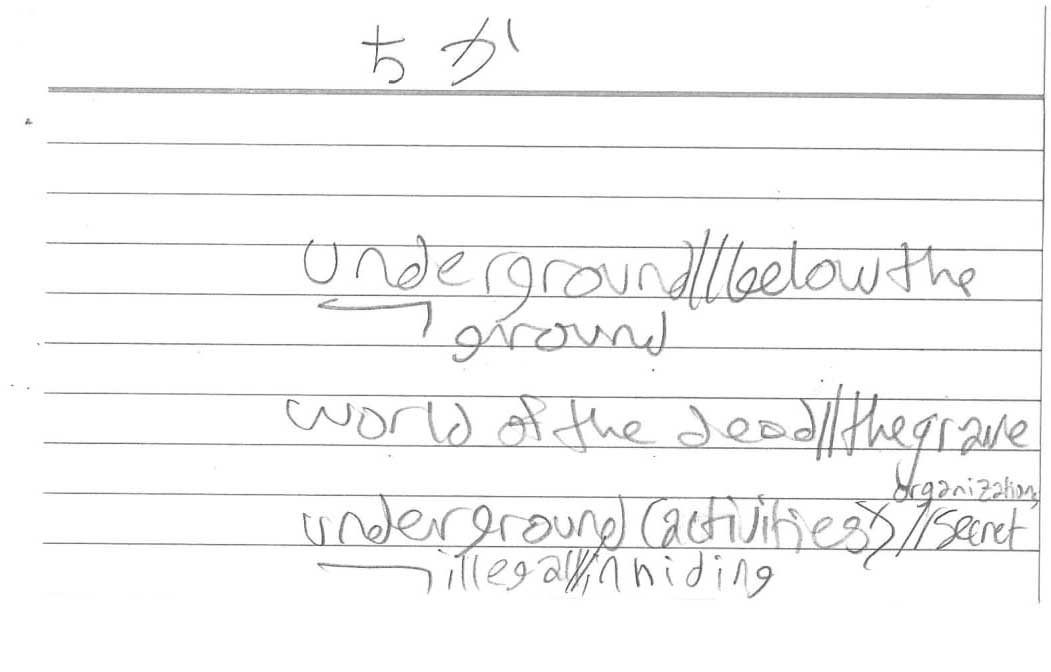 ちか
underground//below the
ground
world of the dead//the grave
organization,
underground (activities)//secret
illegal//in hiding